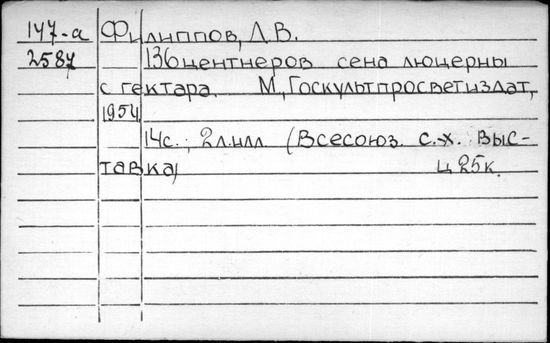 147-а Филиппов, Л.В.
2587 136 центнеров сена люцерны
с гектара. М, Госкультпросветиздат,
1954
14с.; 2л.илл. (Всесоюз. с.-х. выс-
тавка) ц 25к.